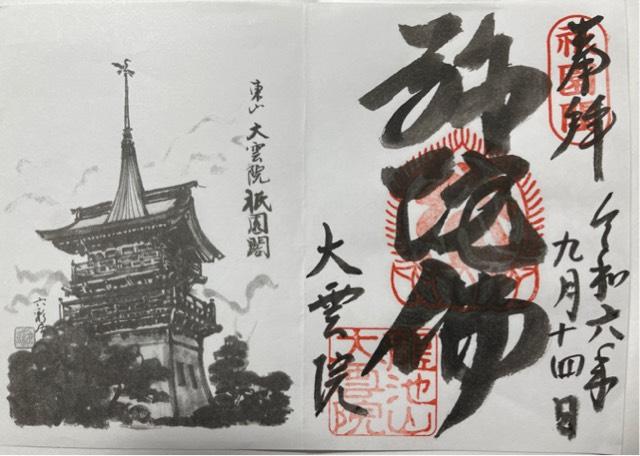 奉拝
祇園閣
令和六年
九月十四日
弥陀佛
大雲院
龍池山
大雲院
東山 大雲院 祇園閣